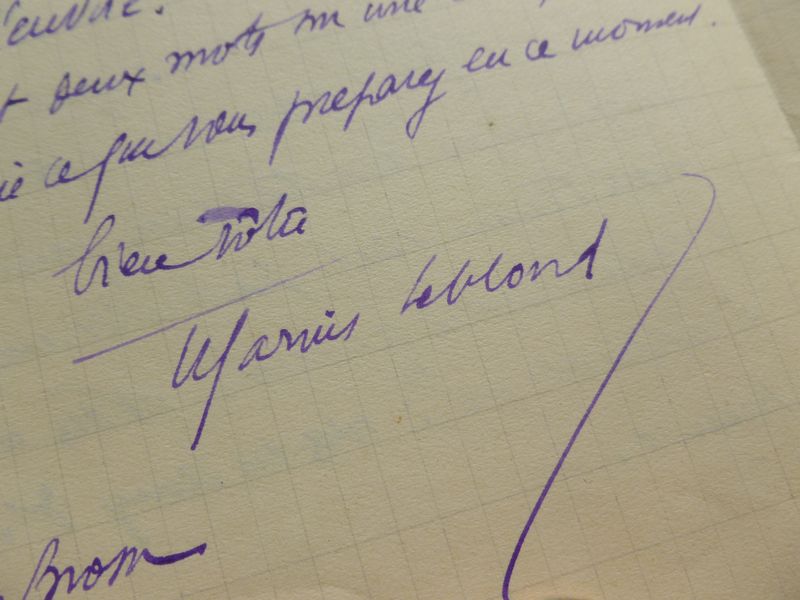 deux mots sur une
ce que vous préparez en ce moment.
bien vôtre
Marius Leblond